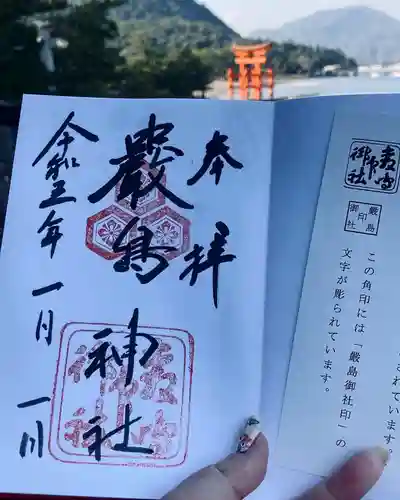 奉拝
嚴島神社
令和五年一月一日
嚴島
御社印
されています。
この角印には「嚴島御社印」の
文字が彫られています。